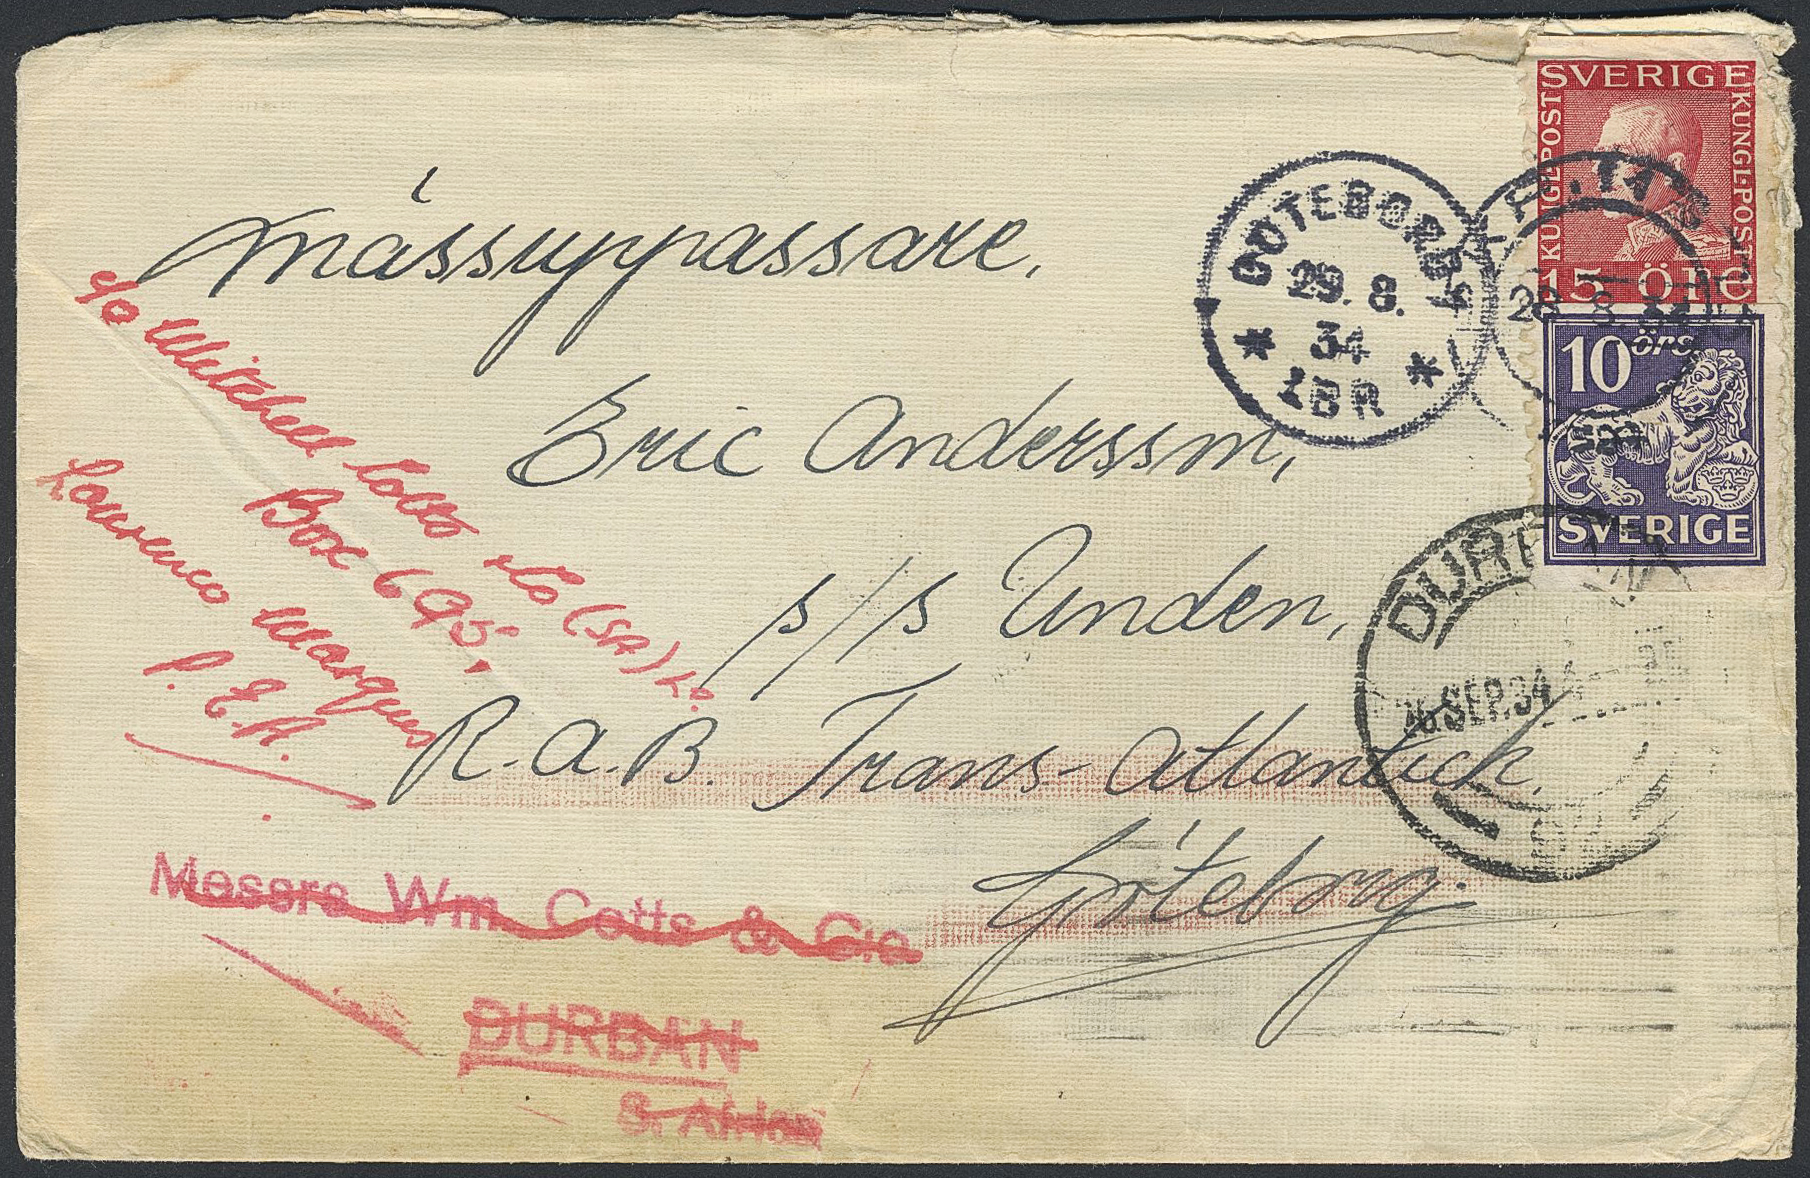 SVERIGE
KUNGL·POST
KUNGL·POST
15 ÖRE
10 öre
SVERIGE
GÖTEBORG
29.8.
34
1BR
28 8 34
DURBAN
SEP.34
mässuppassare.
Eric Andersson,
s/s Unden,
R.A.B. Trans-atlantick.
Göteborg.
c/o Mitchell Cotts & Co (SA) Ld.
Box 695,
Lourenco Marques
P.E.A.
Messrs Wm. Cotts & C:o
DURBAN
S. Africa